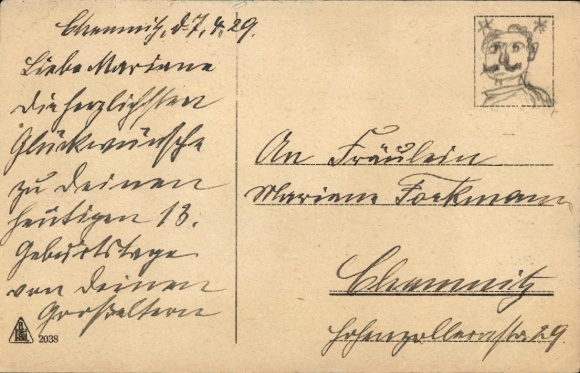 Chemnitz, d. 7.4.29.
Liebe Mariane
die herzlichsten
Glückwünsche
zu Deinen
heutigen 13.
Geburtstage
von Deinen
Großeltern
An Fräulein
Mariane Fockmann
Chemnitz
Hohenzollernstr. 29.
2038